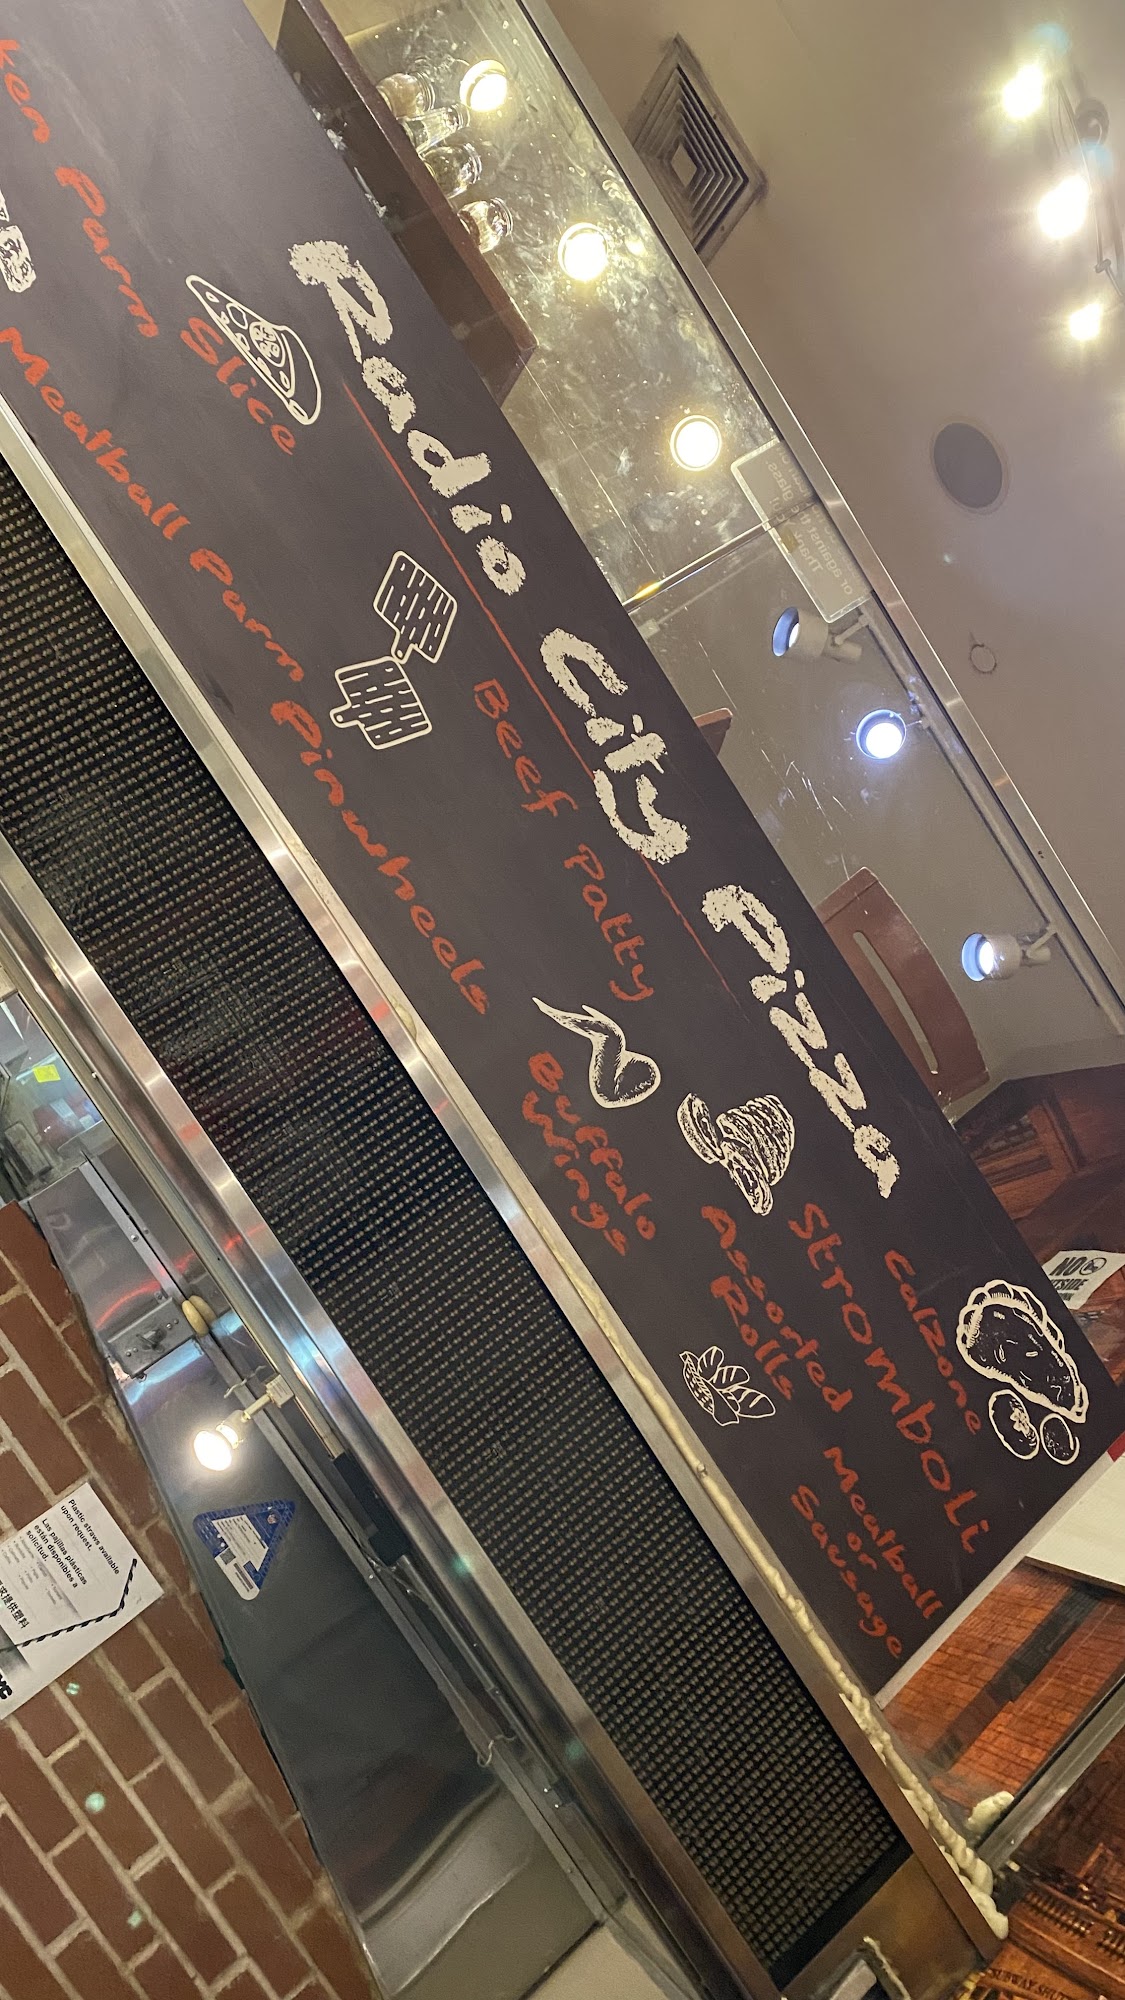 Radio City Pizza
Parm Slice
Meatball Parm Pinwheels
Beef Patty
Buffalo
Wings
Calzone
Stromboli
Assorted
Rolls
Meatball
or
Sausage
NO
Plastic straws available
upon request.
Las pajillas plásticas
están disponibles a
solicitud.
or against the glass.